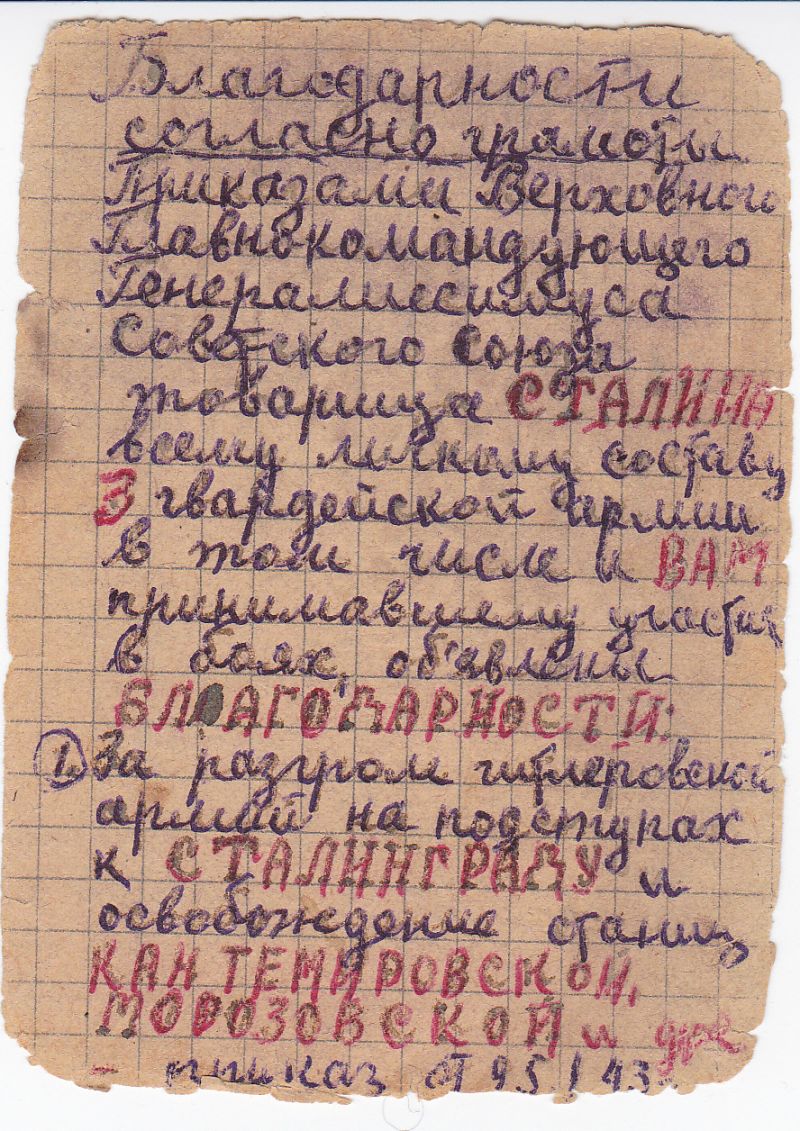 Благодарности
согласно грамоты
Приказами Верховного
Главнокомандующего
Генералиссимуса
Советского Союза
товарища СТАЛИНА
всему личному составу
3 гвардейской армии
в том числе и ВАМ
принимавшему участия
в боях, об'явлены
БЛАГОДАРНОСТИ:
1. За разгром гитлеровской
армий на подступах
к СТАЛИНГРАДУ и
освобождение станиц
КАНТЕМИРОВСКОЙ,
МОРОЗОВСКОЙ и
– приказ от 43